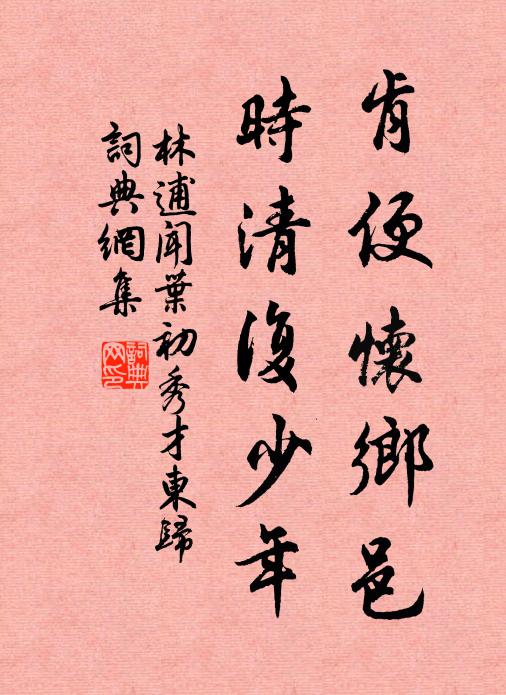 肯便懷鄉邑
時清復少年
林逋聞葉初秀才東歸
詞典網集
詞典網印